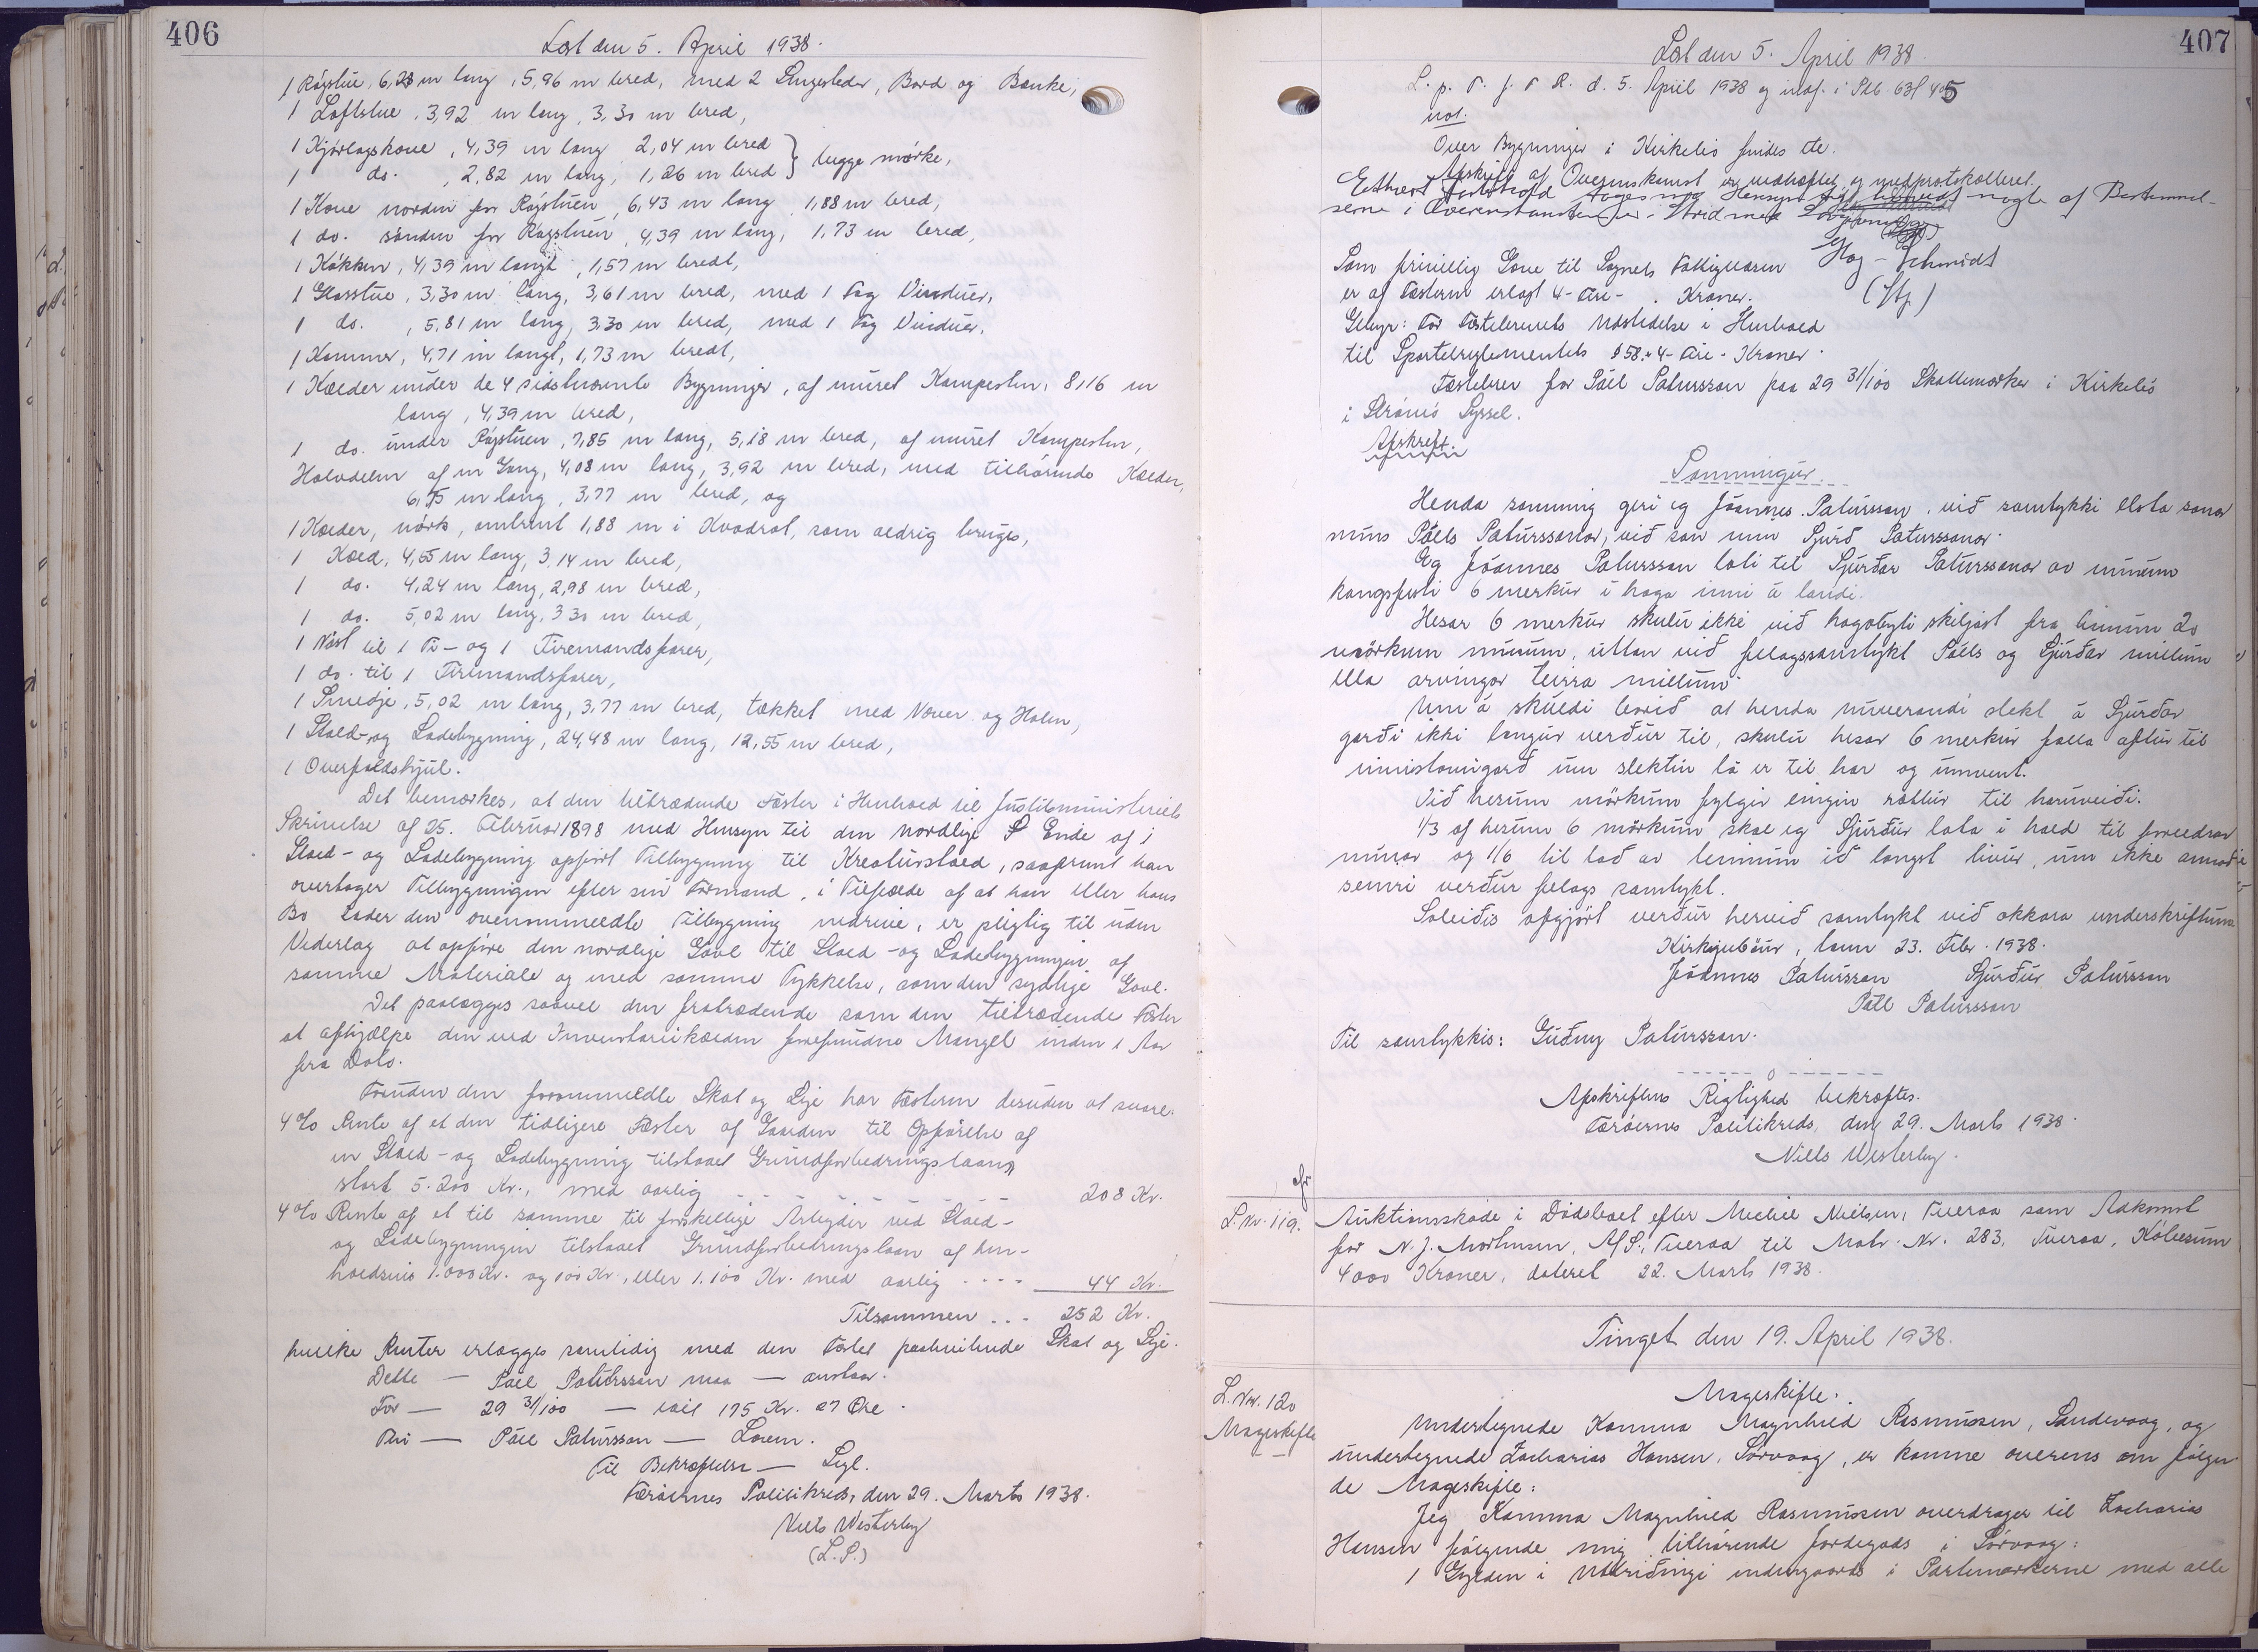 406
Læst den 5. April 1938.
1 Røgstue, 6,28 m lang, 5,96 m bred, med 2 Sengesteder, Bord og Bænke,
1 Loftstue, 3,92 m lang, 3,30 m bred,
1 Kjørlagskove, 4,39 m lang 2,04 m bred
1 do. , 2,82 m lang, 1,26 m bred } begge mørke,
1 Kove norden for Røgstuen, 6,43 m lang, 1,88 m bred,
1 do. sønden for Røgstuen, 4,39 m lang, 1,73 m bred,
1 Køkken, 4,39 m langt, 1,57 m bredt,
1 Glasstue, 3,30 m lang, 3,61 m bred, med 1 Fag Vinduer,
1 do. , 5,81 m lang, 3,30 m bred, med 1 Fag Vinduer,
1 Kammer, 4,71 m langt, 1,73 m bredt,
1 Kælder under de 4 sidstnævnte Bygninger, af muret Kampesten, 8,16 m
lang, 4,39 m bred,
1 do. under Røgstuen, 7,85 m lang, 5,18 m bred, af muret Kampesten,
Halvdelen af en Gang, 4,08 m lang, 3,92 m bred, med tilhørende Kælder,
6,75 m lang, 3,77 m bred, og
1 Kælder, mørk, omtrent 1,88 m i Kvadrat, som aldrig bruges,
1 Hjald, 4,55 m lang, 3,14 m bred,
1 do. 4,24 m lang, 2,98 m bred,
1 do. 5,02 m lang, 3,30 m bred,
1 Nøst til 1 Ti- og 1 Firemandsfarer,
1 do. til 1 Firemandsfarer,
1 Smedje, 5,02 m lang, 3,77 m bred, tækket med Næver og Halm,
1 Stald- og Ladebygning, 24,48 m lang, 12,55 m bred,
1 Overfaldshjul.
Det bemærkes, at den tiltrædende Fæster i Henhold til Justitsministeriets
Skrivelse af 25. Februar 1898 med Hensyn til den nordlige Ende af
Stald- og Ladebygning opført Tilbygning til Kreaturstald, saafremt han
overtager Tilbygningen efter sin Formand, i Tilfælde af at han eller hans
Bo lader den ovenommeldte Tilbygning nedrive, er pligtig til uden
Vederlag at opføre den nordlige Gavl til Stald- og Ladebygningen af
samme Materiale og med samme Tykkelse, som den sydlige Gavl.
Det paalægges saavel den fratrædende som den tiltrædende Fæster
at afhjælpe den ved Inventariekælderen forefundne Mangel inden 1 Aar
fra Dato.
Foruden den forommeldte Skat og Leje har Fæsteren desuden at svare:
4 % Rente af et den tidligere Fæster af Gaarden til Opførelse af
en Stald- og Ladebygning tilstaaet Grundforbedringslaan,
stort 5.200 Kr., med aarlig - - - - - 208 Kr.
4 % Rente af et til samme til forskellige Arbejder ved Stald-
og Ladebygningen tilstaaet Grundforbedringslaan af hen-
holdsvis 1.000 Kr. og 100 Kr., eller 1.100 Kr. med aarlig - - - - 44 Kr.
Tilsammen - - - 252 Kr.
hvilke Renter erlægges samtidig med den Fæstet paahvilende Skat og Leje.
Dette — Páll Patursson maa — anstaar.
For — 29 31/100 — ialt 175 Kr. 87 Øre.
Thi — Páll Patursson — Loven.
Til Bekræftelse — Segl.
Færøernes Politikreds, den 29. Marts 1938.
Niels Westerby
(L.S.)
407
Læst den 5. April 1938.
L. p. T. f. F. R. d. 5. April 1938 og indf. i Skb. 63 f 405
not.
Over Bygninger i Kirkebø findes Ate.
Afskrift af Overenskomst er vedhæftet og medprotokolleret.
Ethvert Forbehold tages med Hensyn til nogle af Bestemmel-
serne i Overenskomsten er i Strid med Lovgivningen
Som frivillig Gave til Sognets Fattigvæsen
er af Fæsteren erlagt 4 - Fire - Kroner.
Høg-Schmidt
(stf.)
Gebyr: For Fæstebrevets Udstedelse i Henhold
til Sportelreglementets § 58: 4 - Fire - Kroner.
Fæstebrev for Páll Patursson paa 29 31/100 Skattemarker i Kirkebø
i Strømø Syssel.
Afskrift.
Sømmingur.
Henda sømming geri eg Jóannes Patursson, við samtykki elsta sonar
míns Pálls Paturssonar, við son mín Sjúrð Paturssonar.
Eg Jóannes Patursson lati til Sjúrðar Paturssonar av mínum
kongsfesti 6 merkur í haga inni á landi.
Hesar 6 merkur skulu ikki við hagabýti skiljast frá hinum 20
mørkum mínum, uttan við felagssamtykt Pálls og Sjúrðar millum
ella arvingar teirra millum.
Um á skuldi borið at henda núverandi slekt á Sjúrðar
garði ikki longur verður til, skulu hesar 6 merkur falla aftur til
innistovugarð um slektin tá er til har og umvent.
Við hesum mørkum fylgir eingin rættur til haruveiði.
1/3 af hesum 6 mørkum skal eg Sjúrður lata í hald til foreldrar
mínar og 1/6 til tað av teimum ið longst livur, um ikki annað
semri verður felags samtykt.
Soleiðis afgjört verður hervið samtykt við okkara underskriftum
Kirkjubøur, tann 23. Febr. 1938.
Jóannes Patursson Sjúrður Patursson
Páll Patursson
Til samtykkis: Guðny Patursson.
- - - - - - o - - - - - -
Afskriftens Rigtighed bekræftes.
Færøernes Politikreds, den 29. Marts 1938.
Niels Westerby.
afs.
L.Nr. 119.
Auktionsskøde i Dødsboet efter Michel Nielsen, Tveraa som Adkomst
for N. J. Mortensen, A/S., Tveraa til Matr. Nr. 283, Tveraa, Købesum
4000 Kroner, dateret 22. Marts 1938.
Tinget den 19. April 1938.
L.Nr. 120
Mageskifte
Mageskifte.
Undertegnede Kamma Magnhild Rasmussen, Sandevaag, og
undertegnede Zacharias Hansen, Sørvaag, er komne overens om følgen-
de Mageskifte:
Jeg Kamma Magnhild Rasmussen overdrager til Zacharias
Hansen følgende mig tilhørende Jordegods i Sørvaag:
1 Gylden i indengaards i Partemarkerne med alle